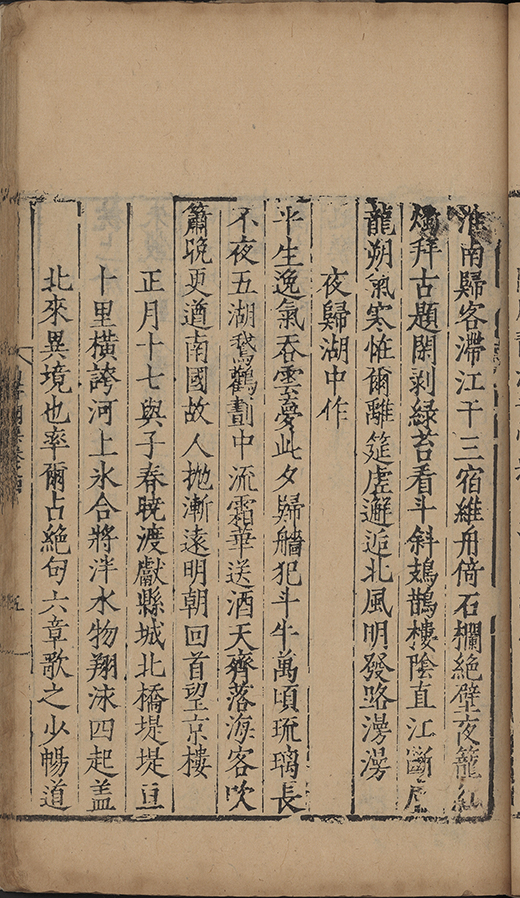 淮南歸客滯江干三宿維舟倚石欄絶壁夜籠
燭拜古題閑剥緑苔看斗斜鳷鵲樓陰直江斷
龍朔氣寒惟爾離筵虛邂逅北風明發路漫漫
夜歸湖中作
平生逸氣吞雲夢此夕歸艢犯斗牛萬頃琉璃長
不夜五湖鵞鸛劃中流霜華送酒天齊落海客吹
簫晚更遒南國故人抛漸遠明朝回首望京樓
正月十七與子春曉渡獻縣城北橋堤堤亘
十里橫誇河上氷合將泮水物翔泳四起蓋
北來異境也率爾占絶句六章歌之少暢道